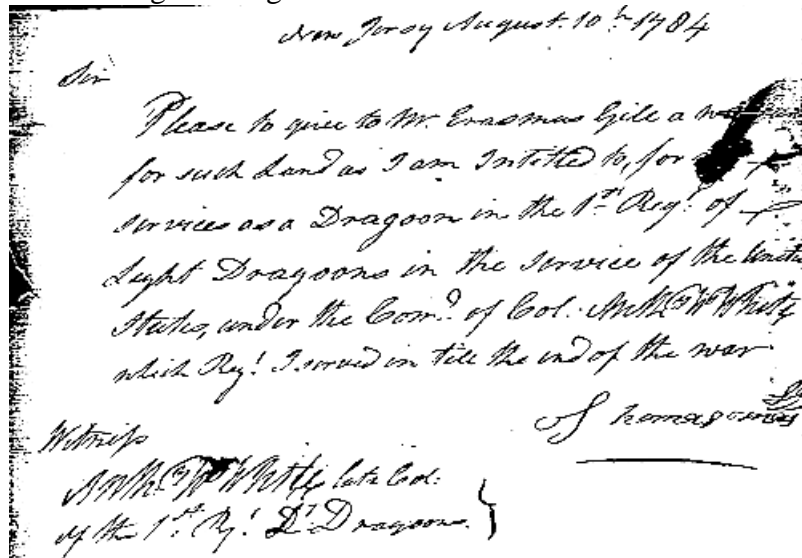 New Jersy August. 10th 1784
Sir
Please to give to Mr. Erasmus Gile a
for such Land as I am Intitled to, for
services as a Dragoon in the 1st Regt of
Light Dragoons in the service of the Unite
States, under the Comd of Col. Anth W White
which Regt I served in till the end of the war
Thomas
Witness
Anth W White late Col.
of the 1st Rgt Lt Dragoons.